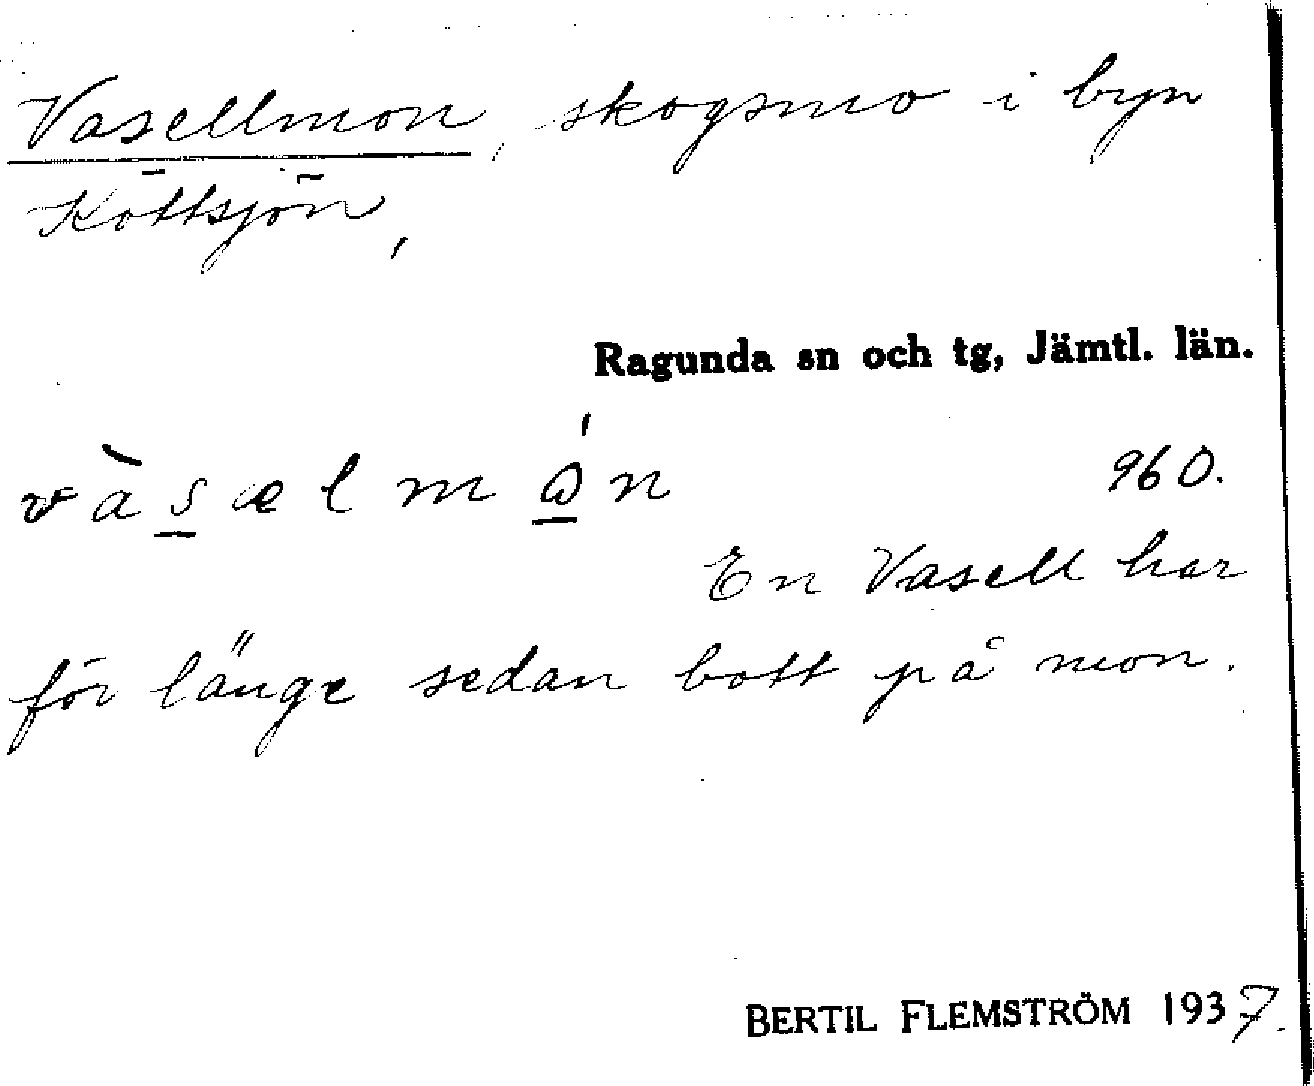 Vasellmon, skogsmo i byn
Köttsjön,
Ragunda sn och tg, Jämtl. län.
vàs̲ælmɷ̲́n 960.
En Vasell har
för länge sedan bott på mon.
BERTIL FLEMSTRÖM 1937.